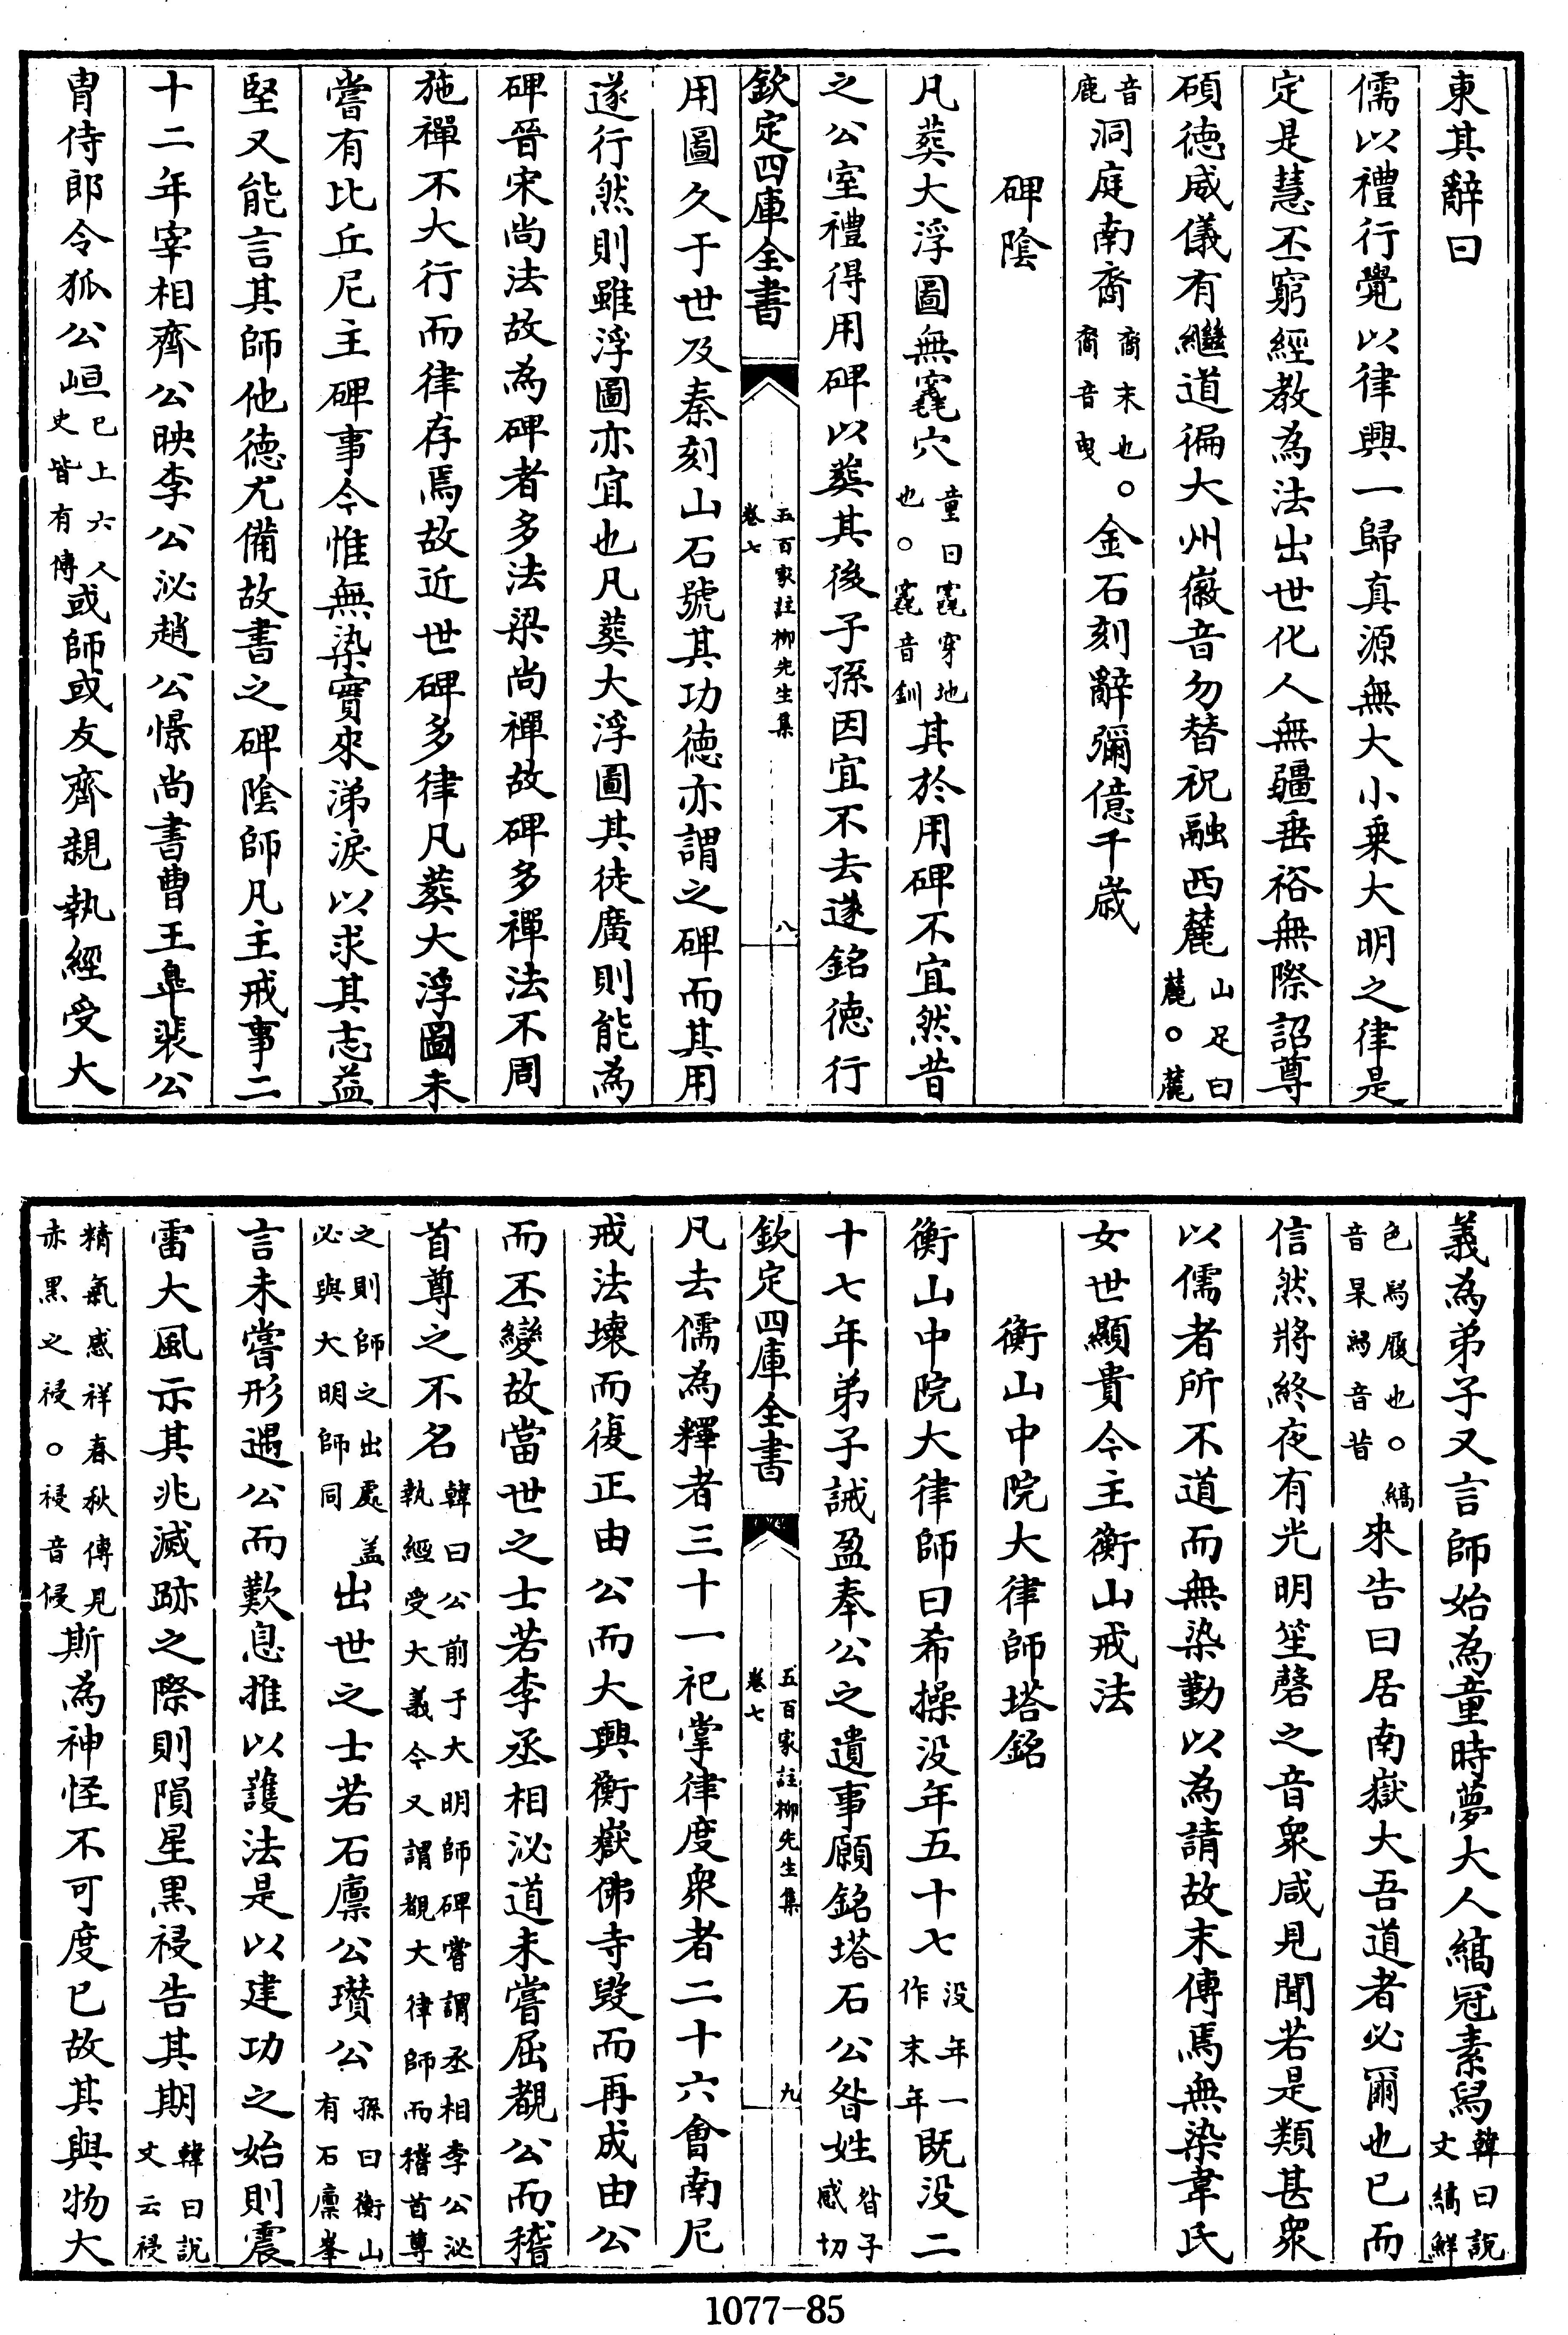 東其辭曰
儒以禮行覺以律興一歸真源無大小乘大明之律是
定是慧丕窮經教為法出世化人無疆垂裕無際詔尊
碩德威儀有繼道徧大州徽音勿替祝融西麓山足曰麓。麓
音鹿洞庭南裔裔末也裔音曳。金石刻辭彌億千歲
碑陰
凡葬大浮圖無竁穴童曰竁穿地也。竁音釧其於用碑不宜然昔
之公室禮得用碑以葬其後子孫因宜不去遂銘德行
欽定四庫全書
五百家註柳先生集
卷七
八
用圖久于世及秦刻山石號其功德亦謂之碑而其用
遂行然則雖浮圖亦宜也凡葬大浮圖其徒廣則能為
碑晉宋尚法故為碑者多法梁尚禪故碑多禪法不周
施禪不大行而律存焉故近世碑多律凡葬大浮圖未
嘗有比丘尼主碑事今惟無染實來涕淚以求其志益
堅又能言其師他德尤備故書之碑陰師凡主戒事二
十二年宰相齊公映李公泌趙公憬尚書曹王臯裴公
胄侍郎令狐公峘已上六人史皆有傳或師或友齊親執經受大
義為弟子又言師始為童時夢大人縞冠素舄韓曰說文縞鮮
色舄履也。縞音杲舄音昔來告曰居南嶽大吾道者必爾也已而
信然將終夜有光明笙磬之音衆咸見聞若是類甚衆
以儒者所不道而無染勤以為請故末傳焉無染韋氏
女世顯貴今主衡山戒法
衡山中院大律師塔銘
衡山中院大律師曰希操没年五十七没年一作末年既没二
十七年弟子誡盈奉公之遺事願銘塔石公昝姓昝子感切
欽定四庫全書
五百家註柳先生集
卷七
九
凡去儒為釋者三十一祀掌律度衆者二十六會南尼
戒法壞而復正由公而大興衡嶽佛寺毀而再成由公
而丕變故當世之士若李丞相泌道未嘗屈覩公而稽
首尊之不名韓曰公前于大明師碑嘗謂丞相李公泌執經受大義今又謂覩大律師而稽首尊
之則師之出處蓋必與大明師同出世之士若石廩公瓚公孫曰衡山有石廩峯
言未嘗形遇公而歎息推以護法是以建功之始則震
雷大風示其兆滅跡之際則隕星黑祲告其期韓曰說文云祲
精氣感祥春秋傳見赤黑之祲。祲音侵斯為神怪不可度已故其與物大
1077-85